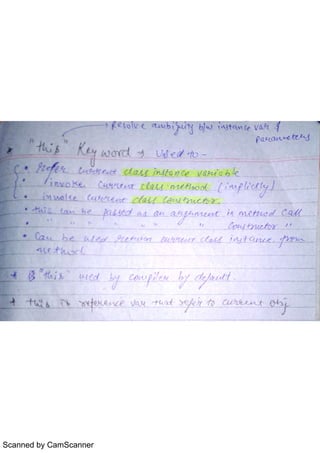 → Resolve ambiguity b/w instance var & parameters
* "this" Keyword → Used to -
• Refer current class instance variable
• invoke current class method (implicitly)
• invoke current class constructor.
• this can be passed as an argument in method call
• " " " " " " " Constructor "
• Can be used return current class instance from method
* "this" used by compiler by default.
* this is reference var that refer to current obj
Scanned by CamScanner